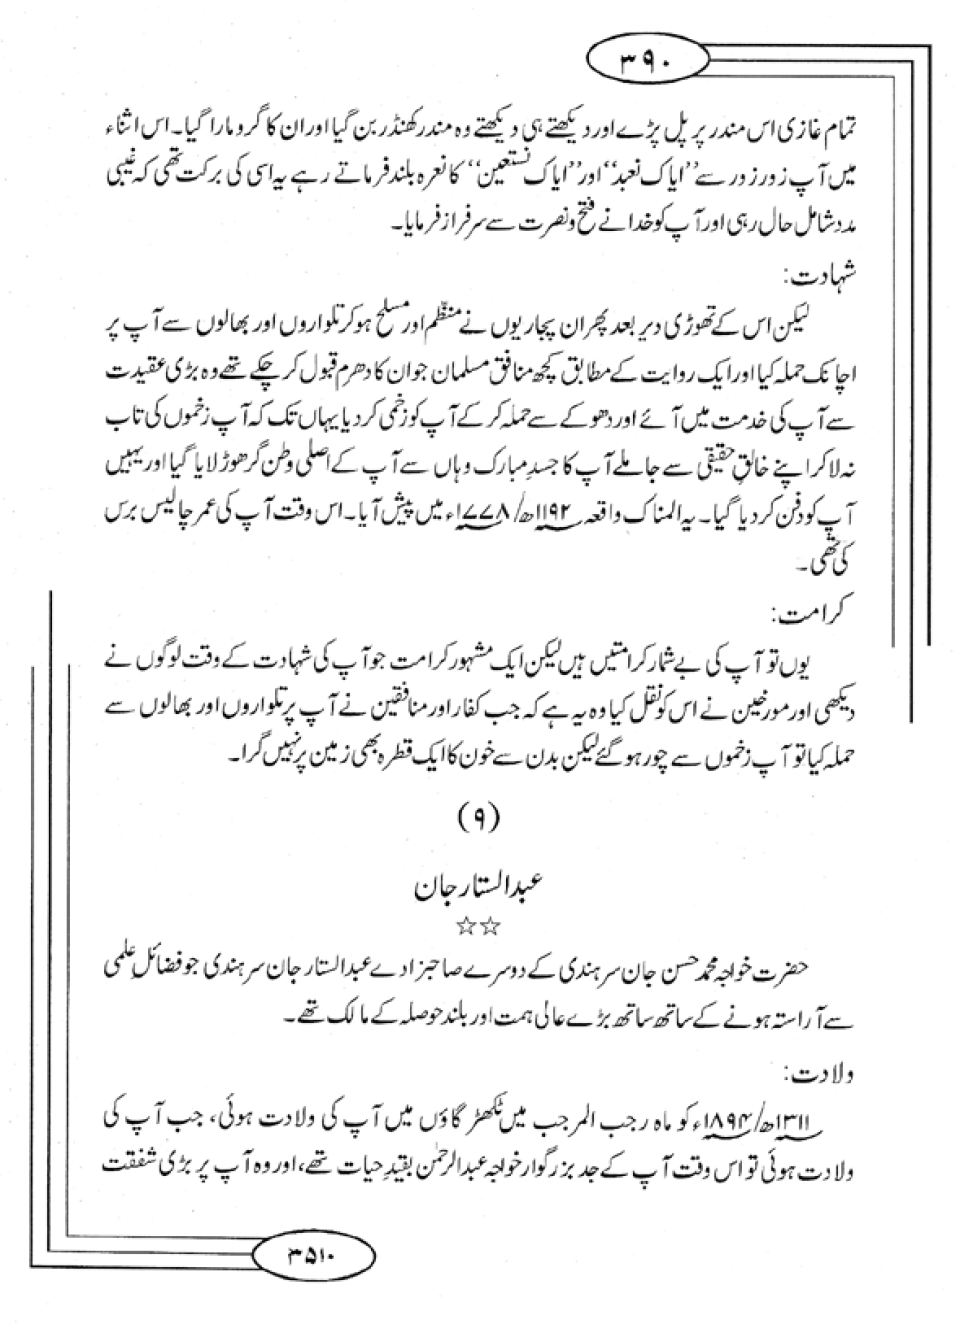 ۳۹۰
تمام غازی اس مندر پر پل پڑے اور دیکھتے ہی دیکھتے وہ مندر کھنڈر بن گیا اور ان کا گرو مارا گیا۔ اس اثناء
میں آپ زور زور سے ”ایاک نعبد“ اور ”ایاک نستعین“ کا نعرہ بلند فرماتے رہے یہ اسی کی برکت تھی کہ غیبی
مدد شامل حال رہی اور آپ کو خدا نے فتح و نصرت سے سرفراز فرمایا۔
شہادت:
لیکن اس کے تھوڑی دیر بعد پھر ان پجاریوں نے منظّم اور مسلح ہو کر تلواروں اور بھالوں سے آپ پر
اچانک حملہ کیا اور ایک روایت کے مطابق کچھ منافق مسلمان جو ان کا دھرم قبول کر چکے تھے وہ بڑی عقیدت
سے آپ کی خدمت میں آئے اور دھوکے سے حملہ کر کے آپ کو زخمی کر دیا یہاں تک کہ آپ زخموں کی تاب
نہ لا کر اپنے خالقِ حقیقی سے جا ملے آپ کا جسدِ مبارک وہاں سے آپ کے اصلی وطن گرھوڑ لایا گیا اور یہیں
آپ کو دفن کر دیا گیا۔ یہ المناک واقعہ ۱۱۹۲ھ/۱۷۷۸ء میں پیش آیا۔ اس وقت آپ کی عمر چالیس برس
کی تھی۔
کرامت:
یوں تو آپ کی بے شمار کرامتیں ہیں لیکن ایک مشہور کرامت جو آپ کی شہادت کے وقت لوگوں نے
دیکھی اور مورخین نے اس کو نقل کیا وہ یہ ہے کہ جب کفار اور منافقین نے آپ پر تلواروں اور بھالوں سے
حملہ کیا تو آپ زخموں سے چور ہو گئے لیکن بدن سے خون کا ایک قطرہ بھی زمین پر نہیں گرا۔
(۹)
عبدالستار جان
☆☆
حضرت خواجہ محمد حسن جان سرہندی کے دوسرے صاحبزادے عبدالستار جان سرہندی جو فضائلِ علمی
سے آراستہ ہونے کے ساتھ ساتھ بڑے عالی ہمت اور بلند حوصلہ کے مالک تھے۔
ولادت:
۱۳۱۱ھ/۱۸۹۴ء کو ماہ رجب المرجب میں ٹکھڑ گاؤں میں آپ کی ولادت ہوئی، جب آپ کی
ولادت ہوئی تو اس وقت آپ کے جد بزرگوار خواجہ عبدالرحمٰن بقیدِ حیات تھے، اور وہ آپ پر بڑی شفقت
۳۵۱۰